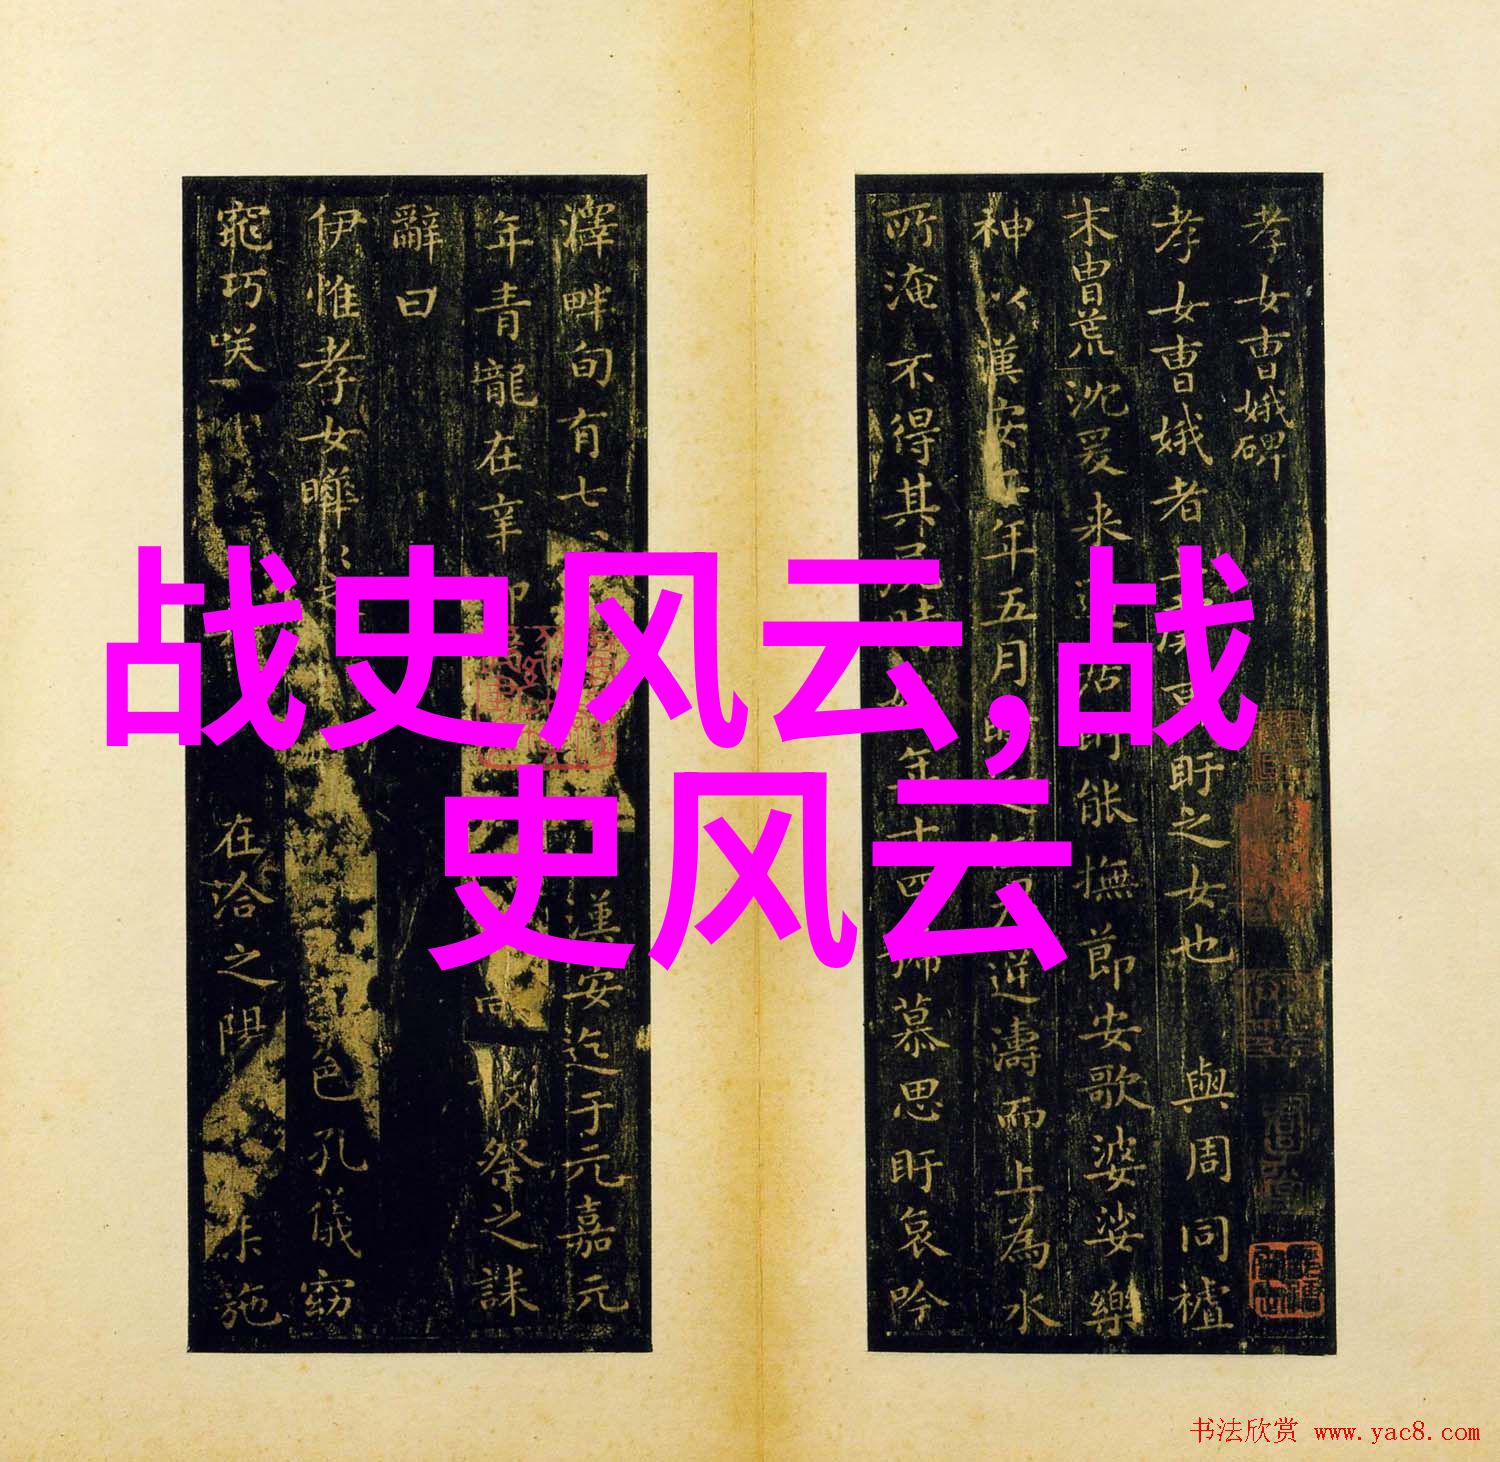 孝女曹娥碑
孝女曹娥者盱之女也與周同
末胄荒沈爰来能撫節安歌婆娑樂
神以漢安年五月逆濤而上為水
所淹不得其時年十四慕思盱哀吟
澤畔旬有七漢安迄于元嘉元
年青龍在辛祭之誄
辭曰
伊惟孝女曄色孔儀窈
窕巧咲在洽之陽施
战史风云,战
史风云
书法欣赏 www.yac8.com